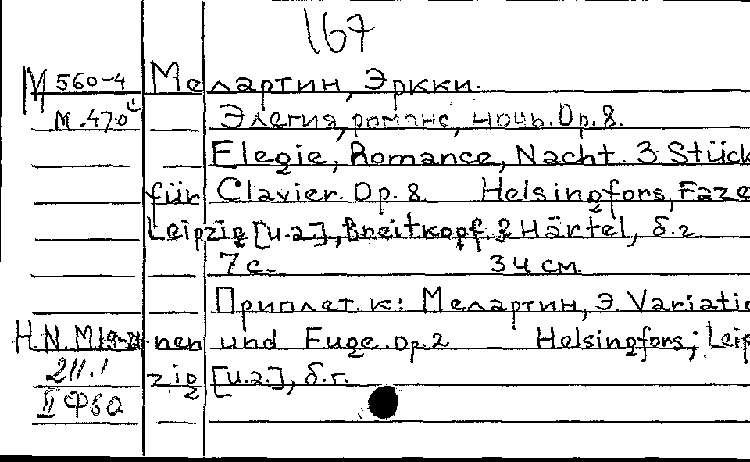 167
М 560-4 Мелартин, Эркки.
М.470 Элегия, романс, ночь. Op. 8.
Elegie, Romance, Nacht. 3 Stück
für Clavier. Op. 8. Helsingfors, Faze
Leipzig [u.a.], Breitkopf & Härtel, б.г.
7 с. 34 см
Приплет. к: Мелартин, Э. Variatio
nen und Fuge. Op. 2 Helsingfors; Leip
211.1 zig [u.a.], б.г.
II Ф60